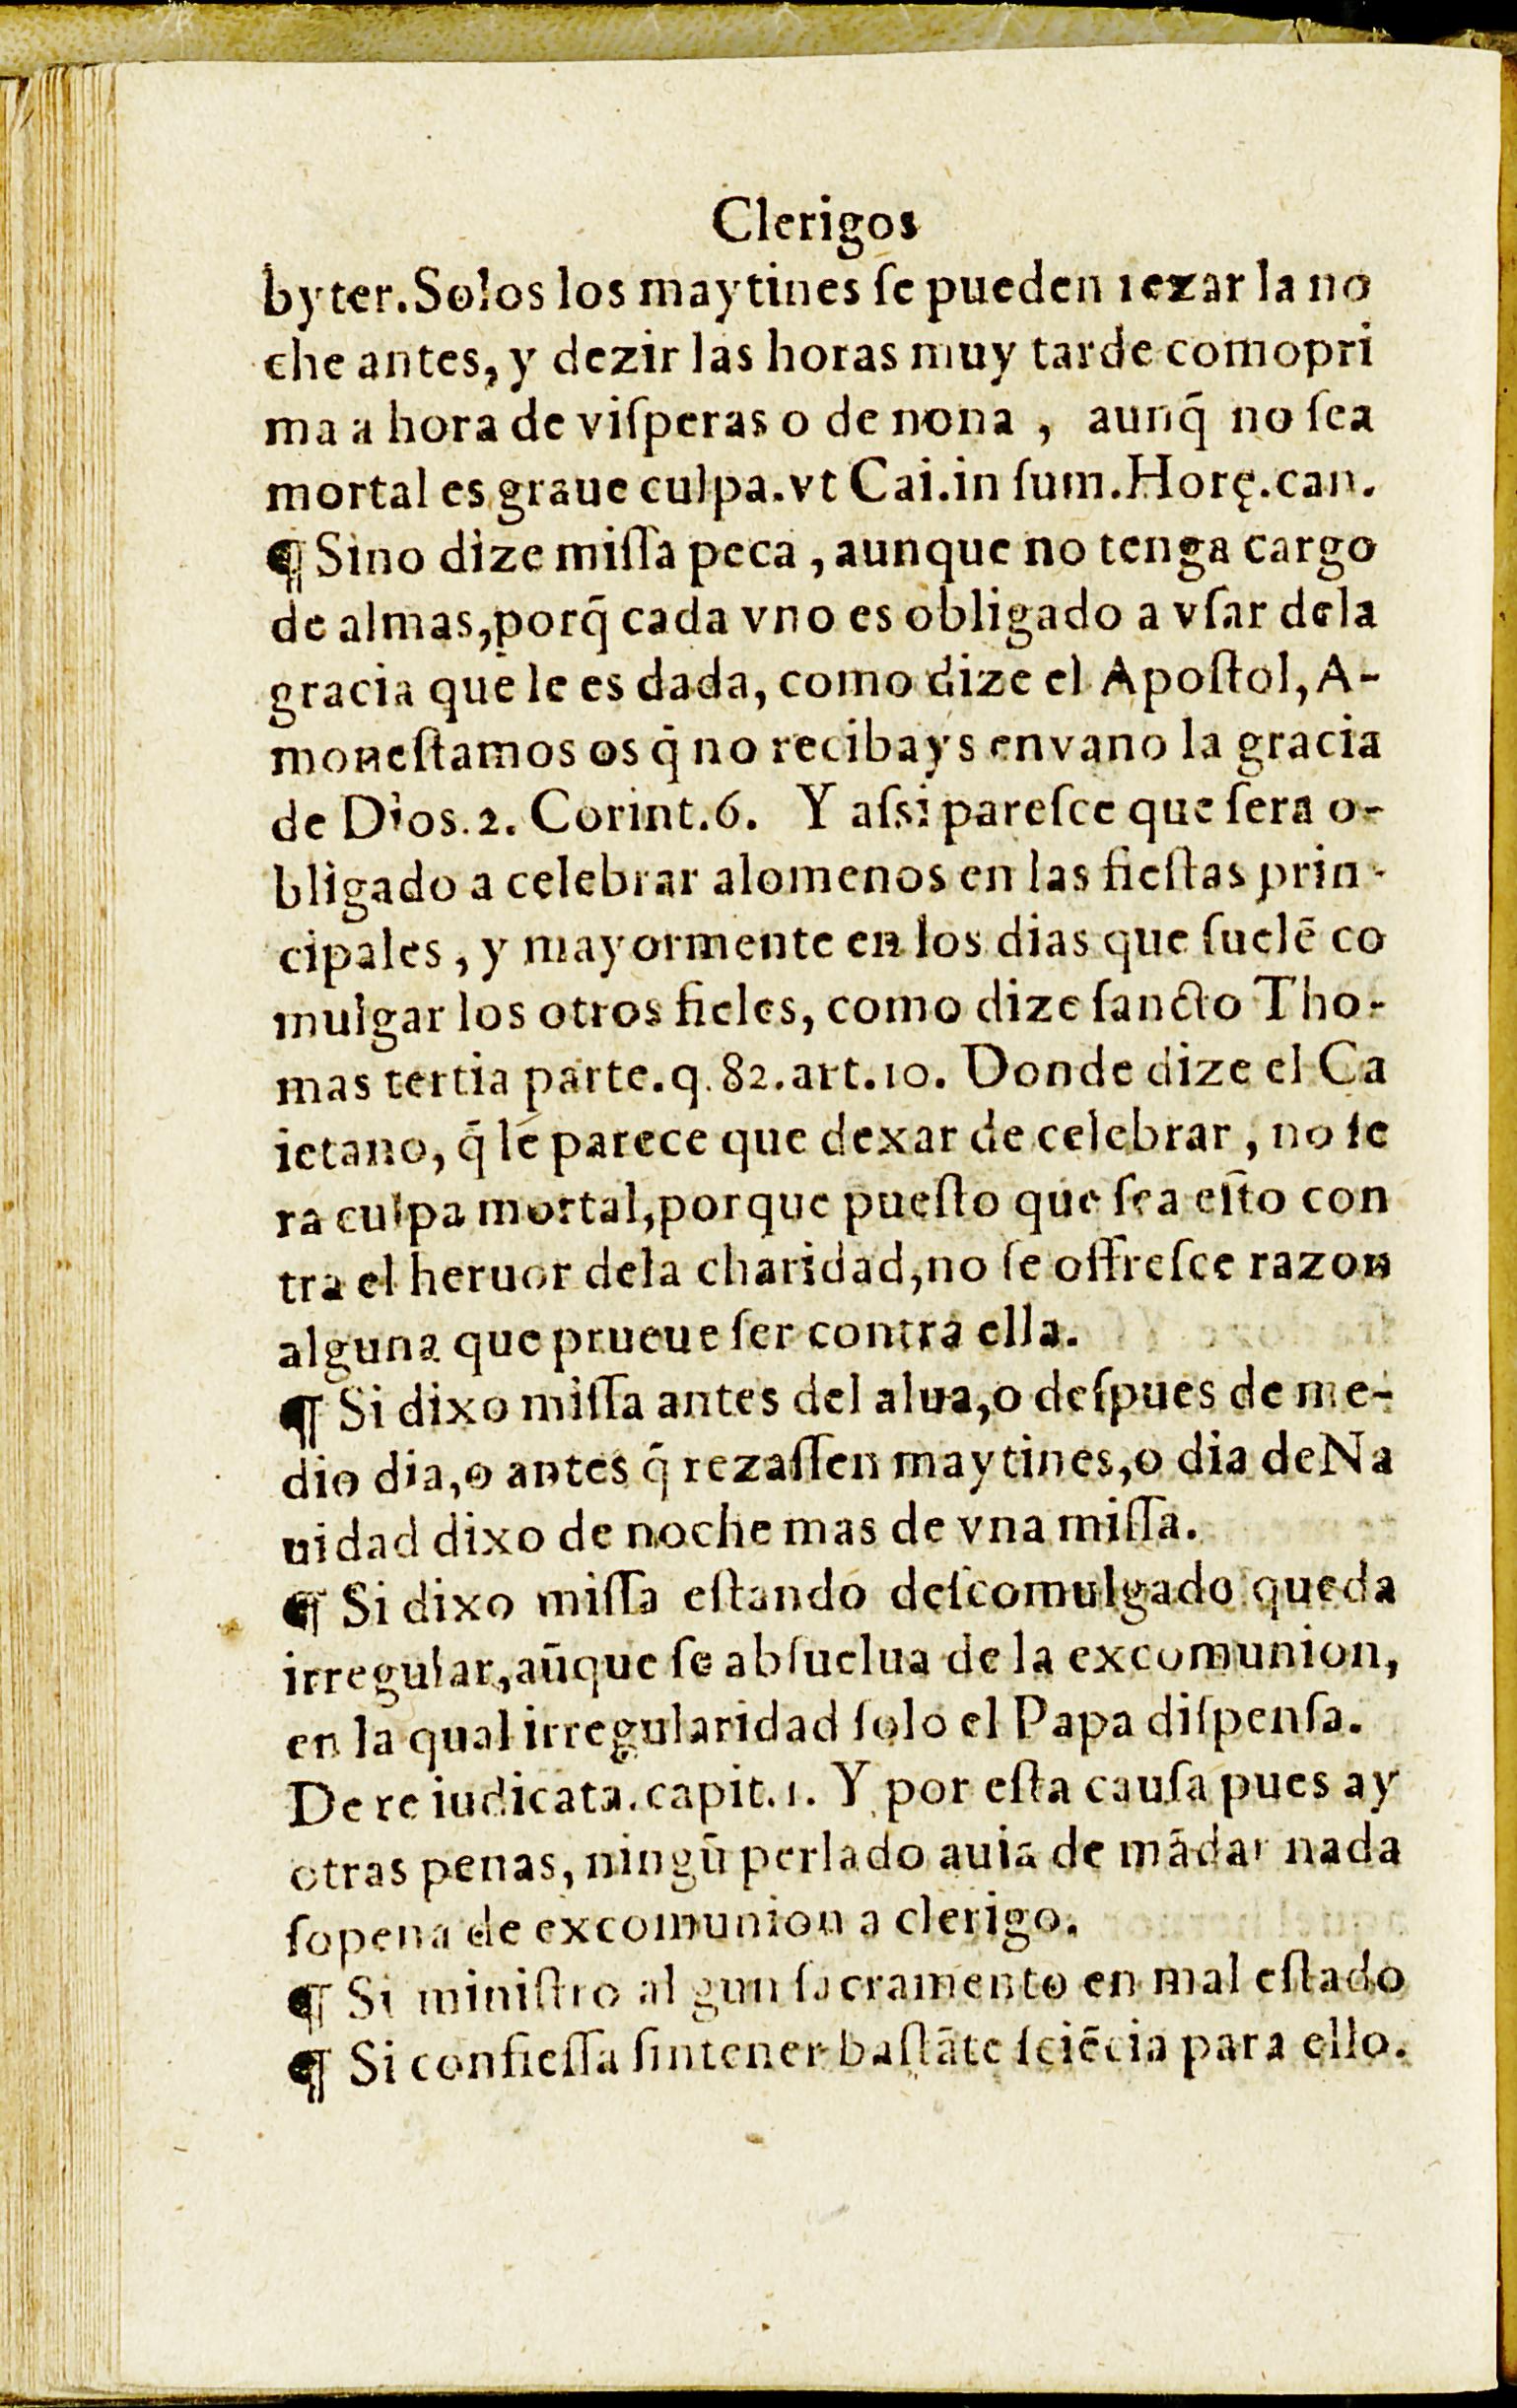 Clerigos
byter.Solos los maytines ſe pueden rezar la no
che antes, y dezir las horas muy tarde comopri
ma a hora de viſperas o de nona , aunq̃ no ſea
mortal es graue culpa.vt Cai.in ſum.Horę.can.
¶ Sino dize miſſa peca , aunque no tenga cargo
de almas,porq̃ cada vno es obligado a vſar dela
gracia que le es dada, como dize el Apoſtol, A-
moneſtamos os q̃ no recibays envano la gracia
de Dios.2. Corint.6. Y aſsi pareſce que ſera o-
bligado a celebrar alomenos en las fieſtas prin-
cipales , y mayormente en los dias que ſuelẽ co
mulgar los otros fieles, como dize ſancto Tho-
mas tertia parte.q.82.art.10. Donde dize el Ca
ietano, q̃ le parece que dexar de celebrar , no ſe
ra culpa mortal,porque pueſto que ſea eſto con
tra el heruor dela charidad,no ſe offreſce razon
alguna que prueue ſer contra ella.
¶ Si dixo miſſa antes del alua,o deſpues de me-
dio dia,o antes q̃ rezaſſen maytines,o dia deNa
uidad dixo de noche mas de vna miſſa.
¶ Si dixo miſſa eſtando deſcomulgado queda
irregular,aũque ſe abſuelua de la excomunion,
en la qual irregularidad ſolo el Papa diſpenſa.
De re iudicata.capit.1. Y por eſta cauſa pues ay
otras penas, ningũ perlado auia de mãdar nada
ſopena de excomunion a clerigo.
¶ Si miniſtro al gun ſacramento en mal eſtado
¶ Si confieſſa ſintener baſtãte ſciẽcia para ello.